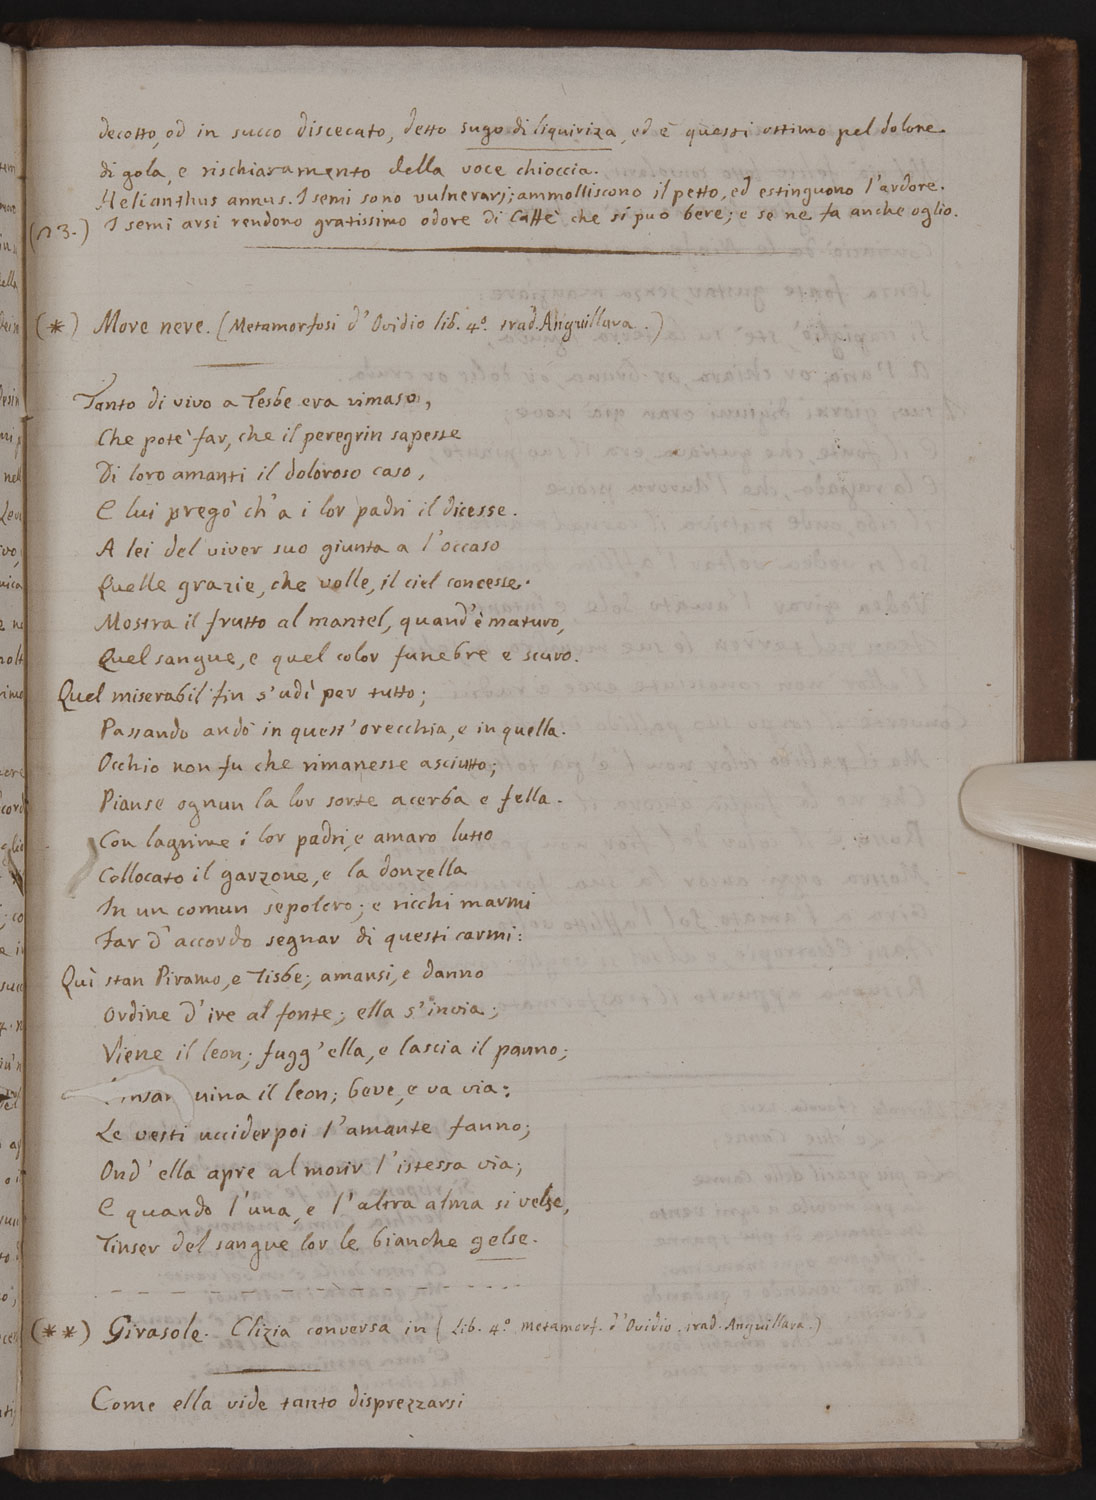 decotto, od in succo diseccato, detto sugo di liquiriza, ed è questi ottimo pel dolore
di gola, e rischiaramento della voce chioccia.
Helianthus annus. I semi sono vulnerarj; ammolliscono il petto, ed estinguono l'ardore.
(n 3.) I semi arsi rendono gratissimo odore di Caffè che si può bere; e se ne fa anche oglio.
(*) More neve. (Metamorfosi d'Ovidio lib. 4º. trad. Anguillara.)
Tanto di vivo a Tesbe era rimaso,
Che potè far, che il peregrin sapesse
Di loro amanti il doloroso caso,
E lui pregò ch'a i lor padri il dicesse.
A lei del viver suo giunta a l'occaso
Quelle grazie, che volle, il ciel concesse.
Mostra il frutto al mantel, quand'è maturo,
Quel sangue, e quel color funebre e scuro.
Quel miserabil fin s'udì per tutto;
Passando andò in quest'orecchia, e in quella.
Occhio non fu che rimanesse asciutto;
Pianse ognun la lor sorte acerba e fella.
Con lagrime i lor padri, e amaro lutto
Collocato il garzone, e la donzella
In un comun sepolcro; e ricchi marmi
Far d'accordo segnar di questi carmi:
Quì stan Piramo, e Tisbe; amansi, e danno
Ordine d'ire al fonte; ella s'invia;
Viene il leon; fugg'ella, e lascia il panno;
il leon; beve, e va via;
Le vesti uccider poi l'amante fanno;
Ond'ella apre al morir l'istessa via;
E quando l'una, e l'altra alma si velse,
Tinser del sangue lor le bianche gelse.
(**) Girasole. Clizia conversa in (Lib. 4.º metamorf. d'Ovidio. trad. Anguillara.)
Come ella vide tanto disprezzarsi